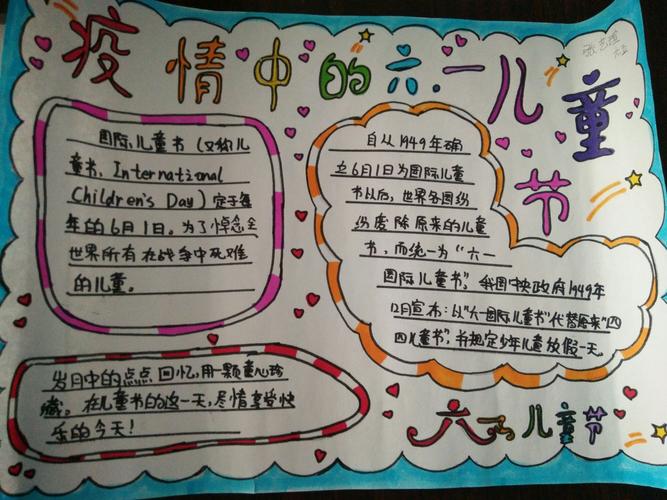 疫情中的六一儿童节
国际儿童书（又称儿
童书，International
Children's Day）定于每
年的6月1日。为了悼念全
世界所有在战争中死难
的儿童。
自从1949年确
立6月1日为国际儿童
书以后，世界各国纷
纷废除原来的儿童
书，而统一为“六一
国际儿童书”，我国中央政府1949年
12月宣布：以“六一国际儿童书”代替原来“四
四儿童书”，并规定少年儿童放假一天。
岁月中的点点回忆，用一颗童心珍
藏。在儿童书的这一天，尽情享受快
乐的今天！
儿童节